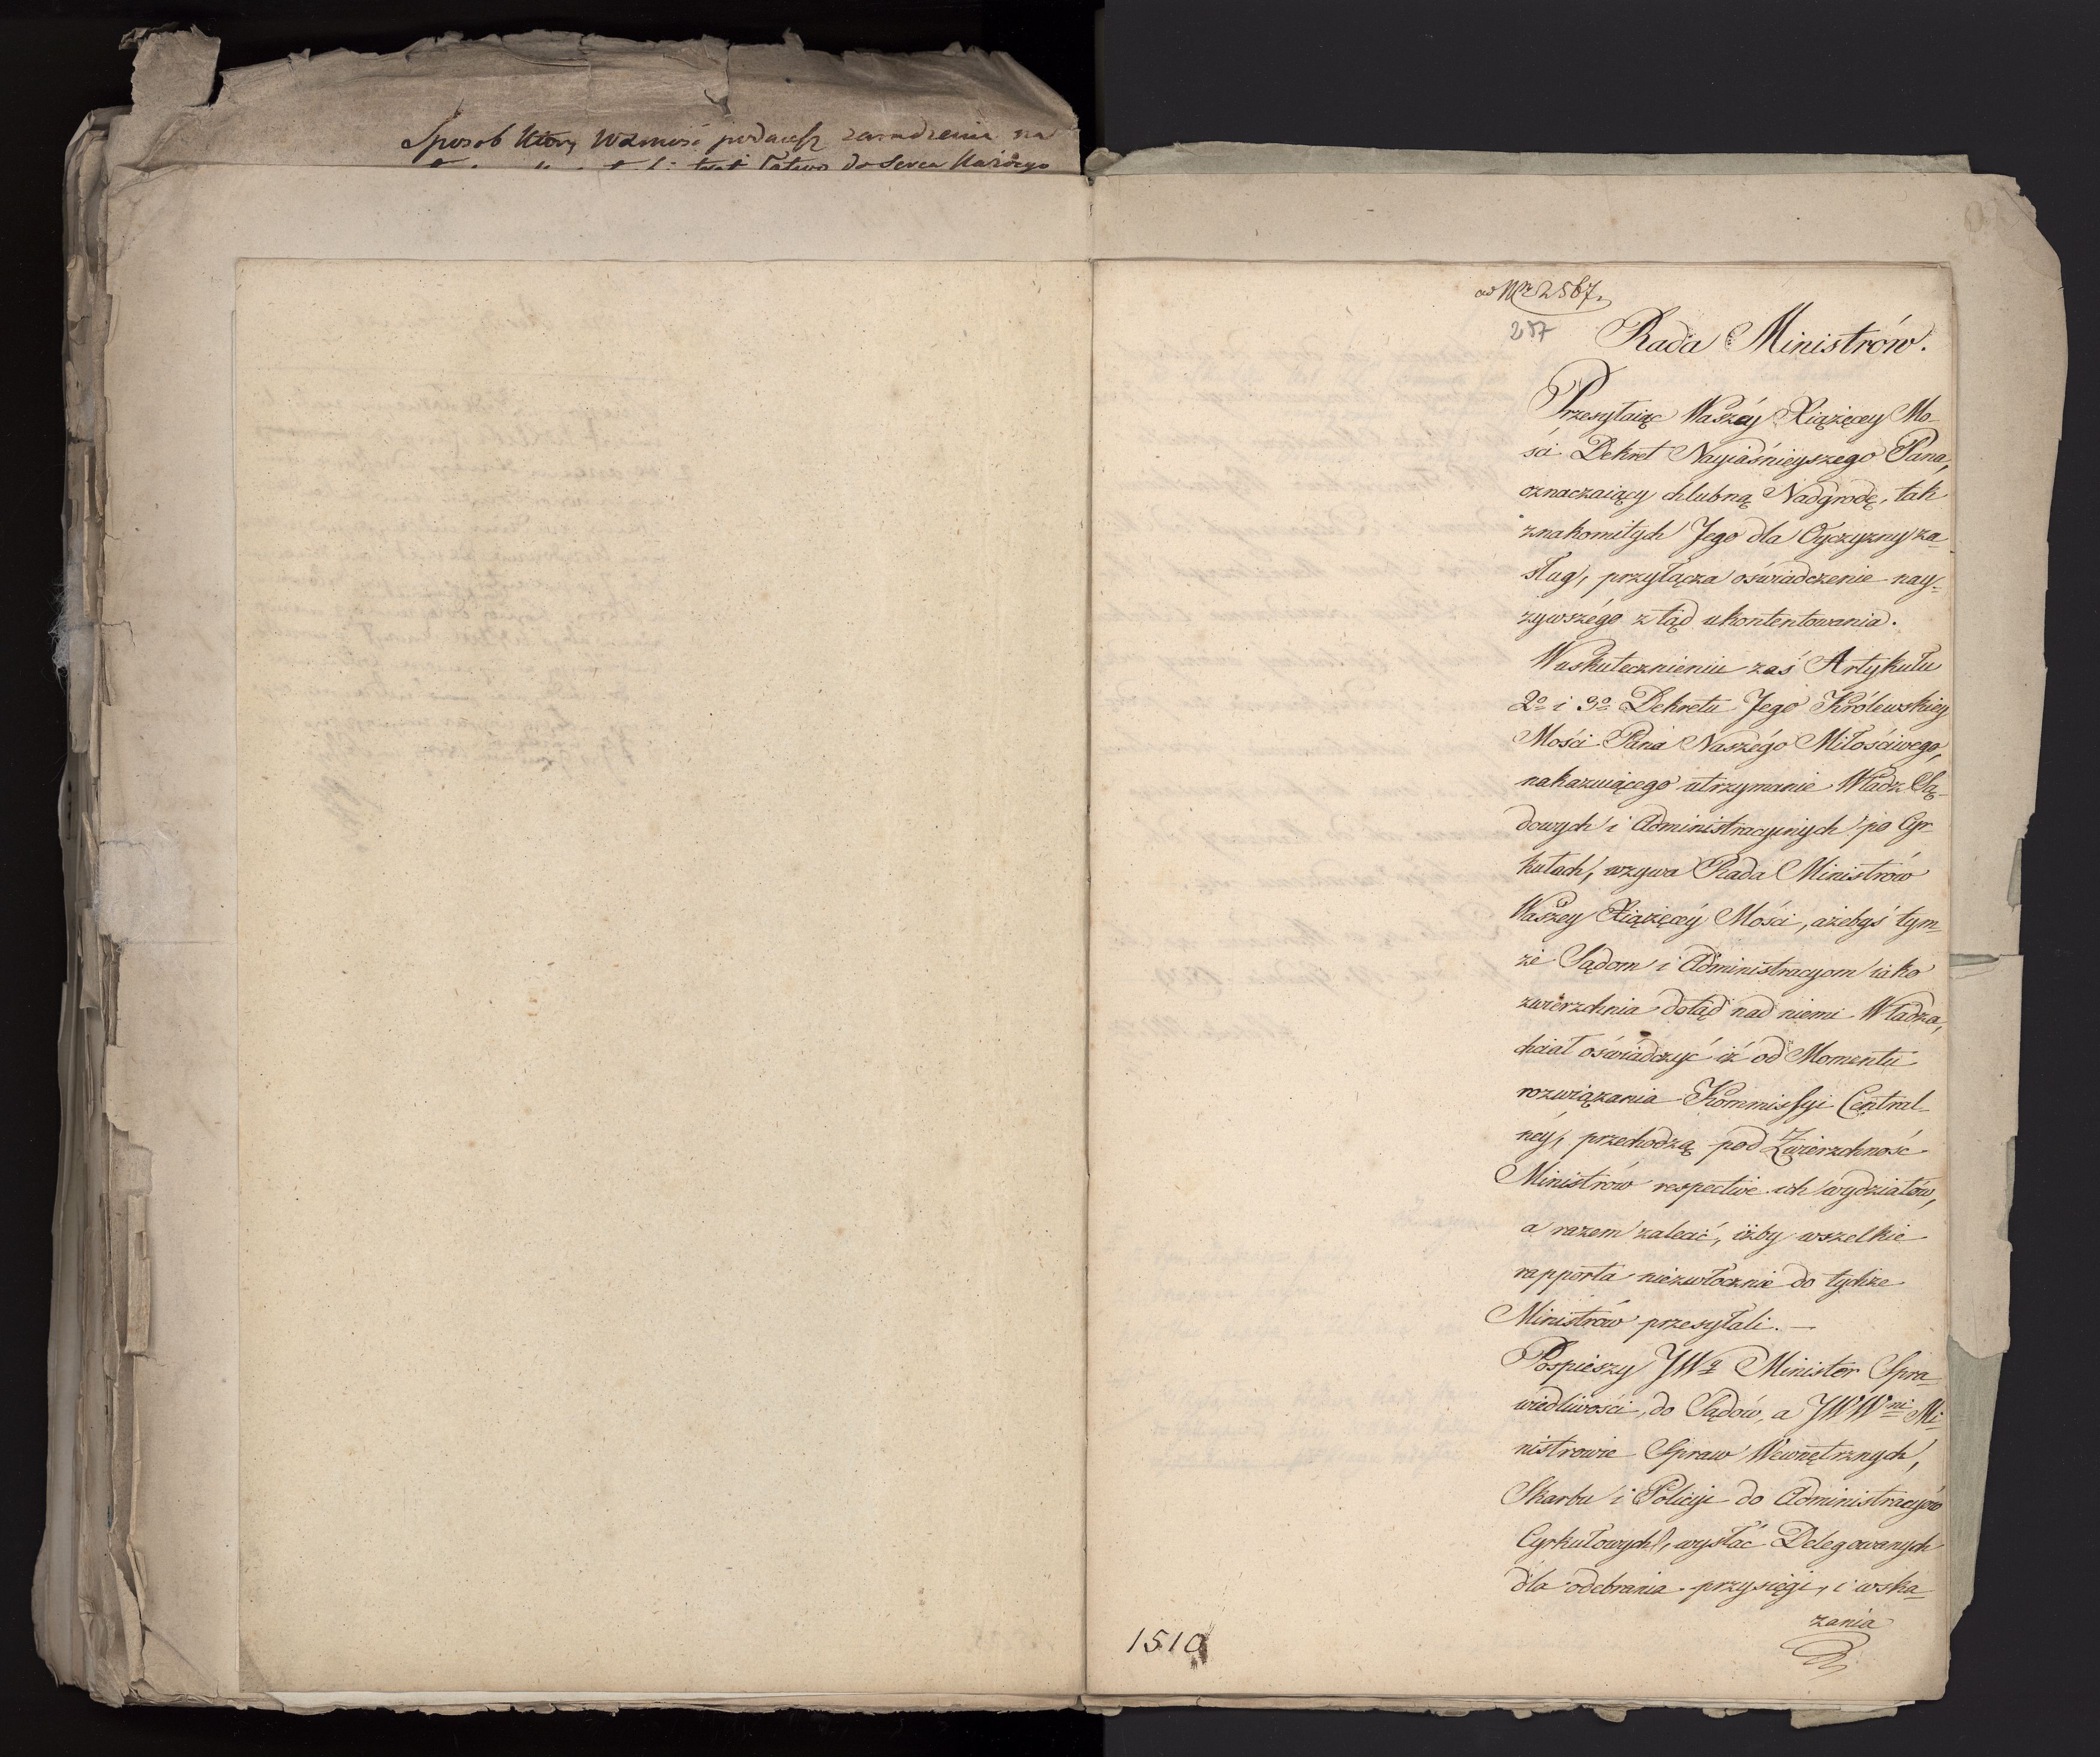 Sposob który Wacmość podaiesz zaradzenia na
łatwo do serca każdego
ad Nr 2567.
257
Rada Ministrów.
Przesyłaiąc Waszéy Xiążęcey Mo-
ści Dekret Nayiaśnieyszego Pana,
oznaczaiący chlubną Nadgrodę, tak
znakomitych Jego dla Oyczyzny za-
sług, przyłącza oświadczenie nay-
żywszégo ztąd ukontentowania.
Wuskutecznieniu zaś Artykułu
2o i 3o Dekretu Jego Królewskiey
Mości Pana Naszégo Miłościwego,
nakazuiącego utrzymanie Władz Są-
dowych i Administracyinych po Cyr
kułach, wzywa Rada Ministrów
Waszey Xiążęcéy Mości, ażebyś tym-
że Sądom i Administracyom iako
zwierzchnia dotąd nad niemi Władza,
chciał oświadczyć iż od Momentu
rozwiązania Kommissyi Central-
néy, przechodzą pod Zwierzchność
Ministrów respective ich wydziałów,
a razem zalecić, iżby wszelkie
rapporta niezwłocznie do tychże
Ministrów przesyłali. —
Pospieszy JWy Minister Spra-
wiedliwości, do Sądów, a JWWni Mi
nistrowie Spraw Wewnętrznych,
Skarbu i Policyi do Administracyów
Cyrkułowych, wysłać Delegowanych
dla odebrania przysięgi, i wska-
zania
1510